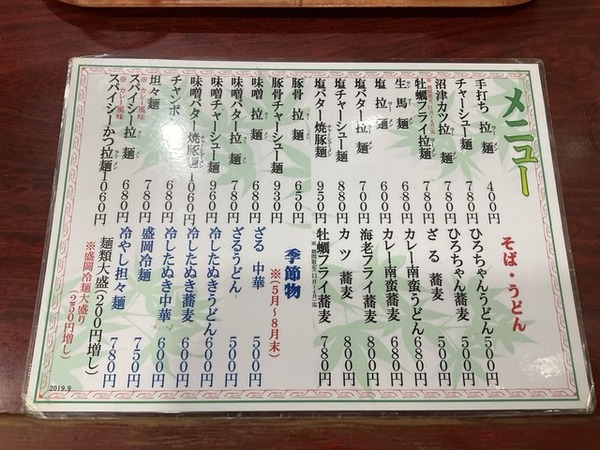 メニュー
手打ち拉麺 400円
チャーシュー麺 780円
沼津カツ拉麺 780円
牡蠣フライ拉麺 780円
生馬麺 680円
塩拉麺 600円
塩バター拉麺 700円
塩チャーシュー麺 880円
塩バター焼豚麺 950円
豚骨拉麺 650円
豚骨チャーシュー麺 930円
味噌拉麺 680円
味噌バター拉麺 780円
味噌チャーシュー麺 960円
味噌バター焼豚麺 1060円
チャンポン 780円
坦々麺 780円
※カレー風味
スパイシー拉麺 680円
※カレー風味
スパイシーかつ拉麺 1060円
そば・うどん
ひろちゃんうどん 500円
ひろちゃん蕎麦 500円
ざる蕎麦 500円
カレー南蛮うどん 680円
カレー南蛮蕎麦 680円
海老フライ蕎麦 800円
カツ蕎麦 800円
牡蠣フライ蕎麦 780円
季節物
※(5月~8月末)
ざる中華 500円
ざるうどん 500円
冷したぬきうどん 600円
冷したぬき蕎麦 600円
冷したぬき中華 600円
盛岡冷麺 750円
冷やし坦々麺 780円
麺類大盛(200円増し)
※盛岡冷麺大盛り
(250円増し)
2019.9